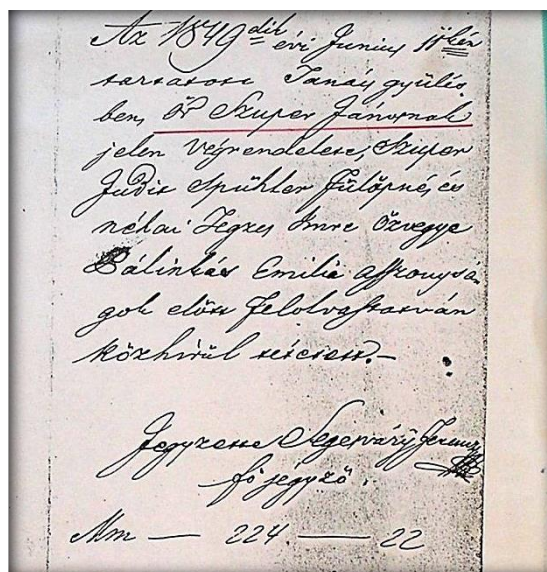 Az 1849dik évi Junius 11kén
tartatott Tanács gyülés
ben, őr Szuper Jánosnak
jelen végrendelete, Szuper
Judit Spühler Fülöpné, és
néhai Jegzes Imre özvegye
Bálintás Emilia asszonysá
gok előtt felolvastatván
közhirül tétetett. –
Jegyzette Segesváry Ferencz
főjegyző.
Nm — 224 — 22